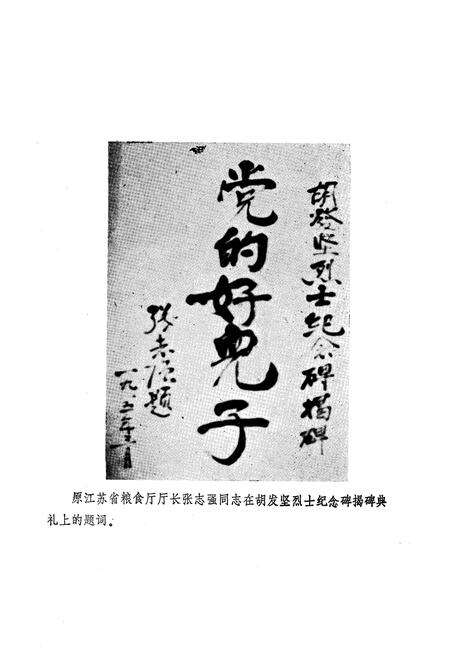 胡發坚烈士纪念碑揭碑
党的好兒子
张志强题
原江苏省粮食厅厅长张志强同志在胡发坚烈士纪念碑揭碑典
礼上的题词。